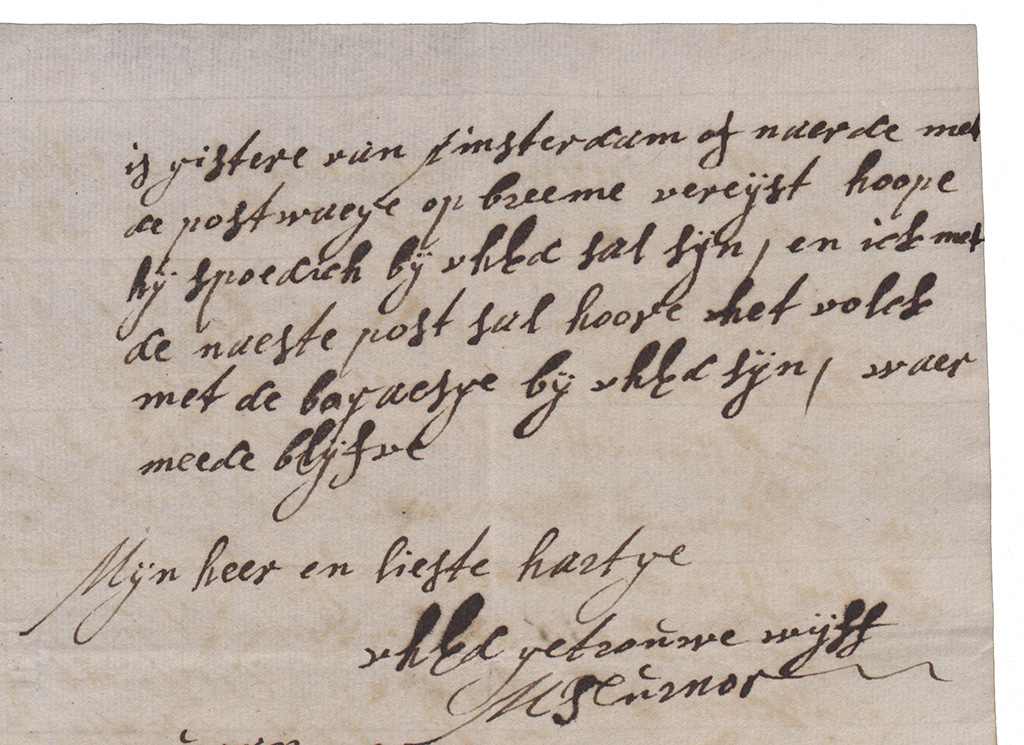 is gistere van Amsterdam of naerde met
de postwaege op breeme vereijst hoope
hij spoedich bij uhEd sal sijn, en ick met
de naeste post sal hoore het volck
met de bagaesge bij uhEd sijn, waer
meede blijfve
Mijn heer en lieste hartge
uhEd getrouwe wijff
M Turnor